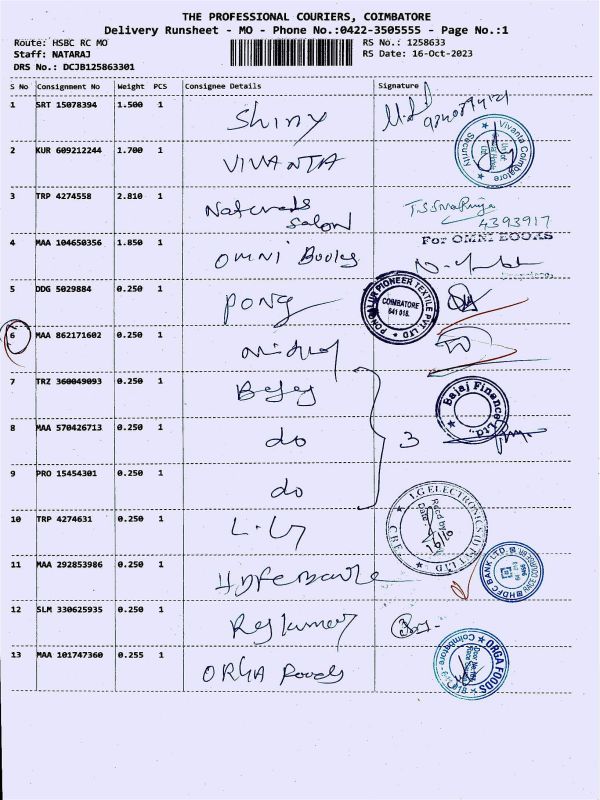 THE PROFESSIONAL COURIERS, COIMBATORE
Delivery Runsheet - MO - Phone No.:0422-3505555 - Page No.:1
Route: HSBC RC MO RS No.: 1258633
Staff: NATARAJ RS Date: 16-Oct-2023
DRS No.: DCJB125863301
S No Consignment No Weight PCS Consignee Details Signature
1 SRT 15078394 1.500 1 Shiny
2 KUR 609212244 1.700 1 VIVANTA
Vivanta Coimbatore
Security
3 TRP 4274558 2.810 1 Naturals
Salon
4393917
4 MAA 104650356 1.850 1 OMNI Books
For OMNI BOOKS
5 DDG 5029884 0.250 1 PONG
PIONEER TEXTILE PVT. LTD
COIMBATORE
641 018.
6 MAA 862171602 0.250 1
7 TRZ 360049093 0.250 1 Bajaj
Bajaj Finance Ltd.,
8 MAA 570426713 0.250 1 do 3
9 PRO 15454301 0.250 1 do
10 TRP 4274631 0.250 1 L.G
LG ELECTRONICS (I) PVT LTD
CBE
Recd by
Date:
11 MAA 292853986 0.250 1 HDFC Bank
HDFC BANK LTD.
12 SLM 330625935 0.250 1 Rajkumar
13 MAA 101747360 0.255 1 ORGA Foods
ORGA FOODS
Coimbatore